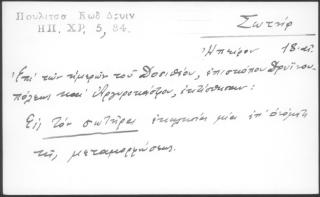 Πουλίτσα Κωδ Δρυιν
ΗΠ. ΧΡ, 5, 84.
Σωτήρ
Ἤπειρον 18. αἰ.
Ἐπί τῶν ἡμερῶν τοῦ Δοσιθέου, ἐπισκόπου Δρυϊνου
πόλεως καί Ἀργυροκάστρου, ἐκτίσθησαν:
Εἰς τόν σωτῆρα ἐκκλησία μία ἐπ' ὀνόματι
τῆς μεταμορφώσεως.